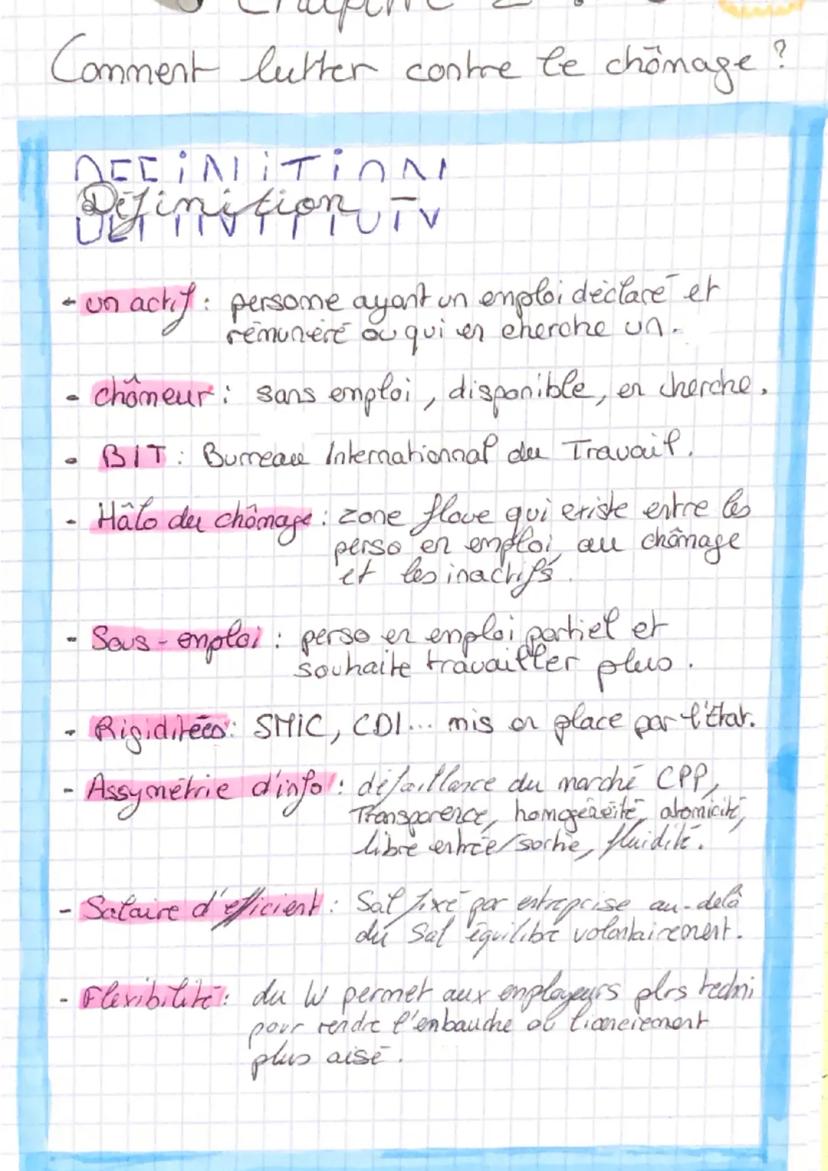 Chapitre 2 :
Comment lutter contre le chômage ?
DEFINITION
Définition
- un actif : persone ayant un emploi déclaré et
rémunéré ou qui en cherche un.
- chômeur : sans emploi, disponible, en cherche.
- BIT : Bureau Internationnal du Travail.
- Hâlo du chômage : zone floue qui existe entre les
perso en emploi, au chômage
et les inactifs.
- Sous-emploi : perso en emploi partiel et
souhaite travailler plus.
- Rigiditées : SMIC, CDI... mis en place par l'État.
- Assymétrie d'info : défaillance du marché CPP,
Transparence, homogénéité, atomicité,
libre entrée/sortie, fluidité.
- Salaire d'efficient : Sal fixé par entreprise au-delà
du Sal équilibre volontairement.
- Flexibilité : du W permet aux employeurs plrs techni
pour rendre l'enbauche ou licenciement
plus aisé.